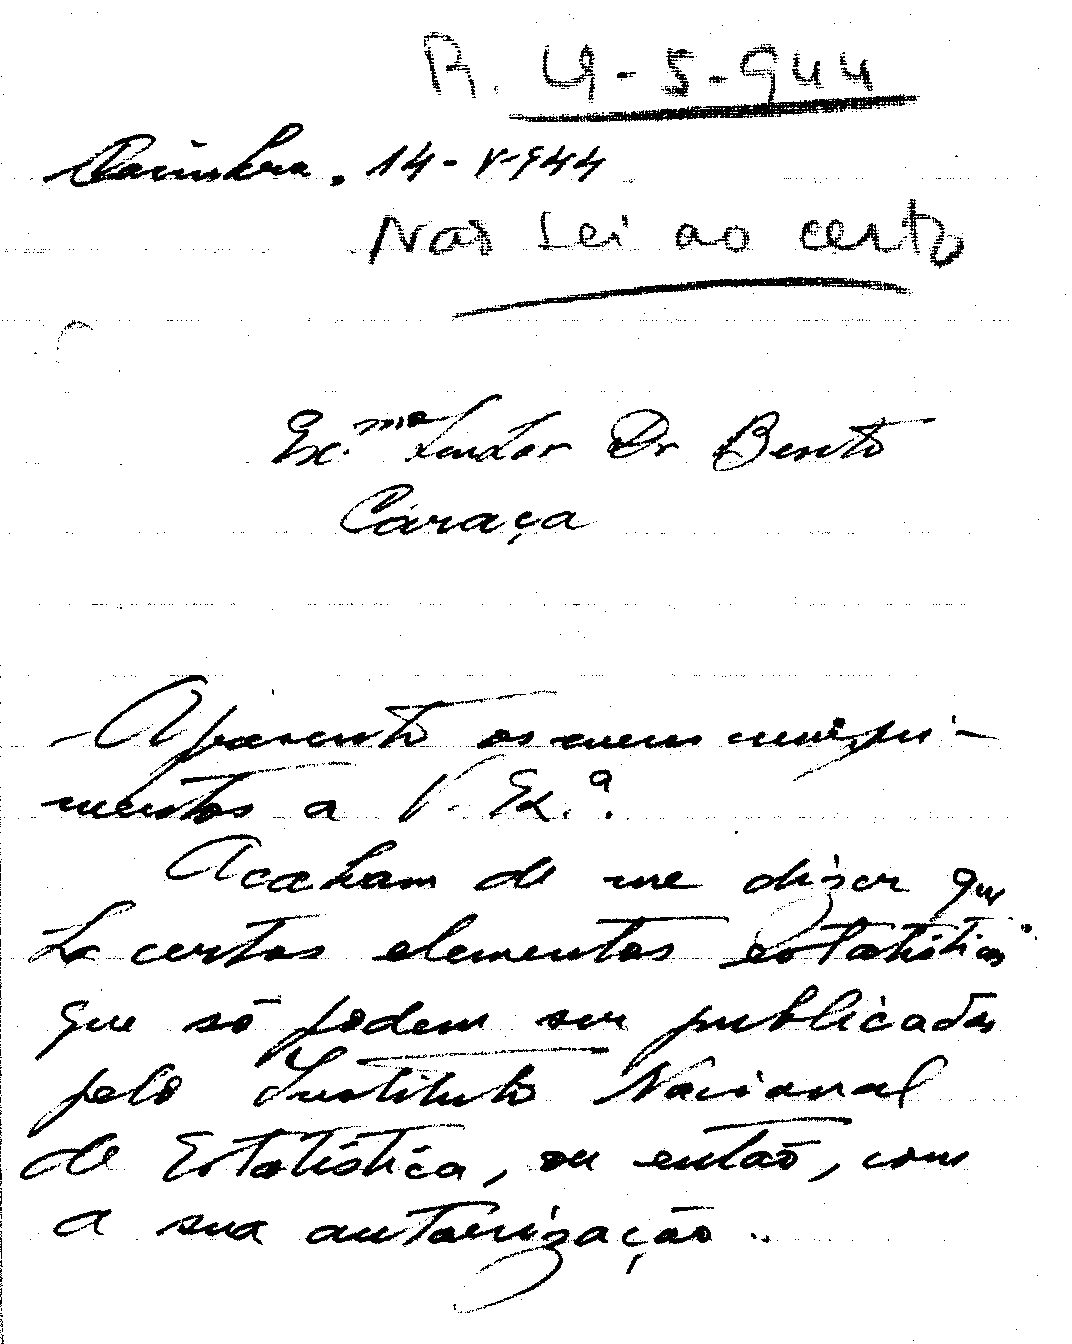 R. 19-5-944
Coimbra, 14-V-944
Não sei ao certo
Ex.mo Senhor Dr Bento
Caraça
Apresento os meus cumpri-
mentos a V. Ex.ª.
Acabam de me dizer que
há certos elementos estatísticos
que só podem ser publicados
pelo Instituto Nacional
de Estatística, ou então, com
a sua autorização..